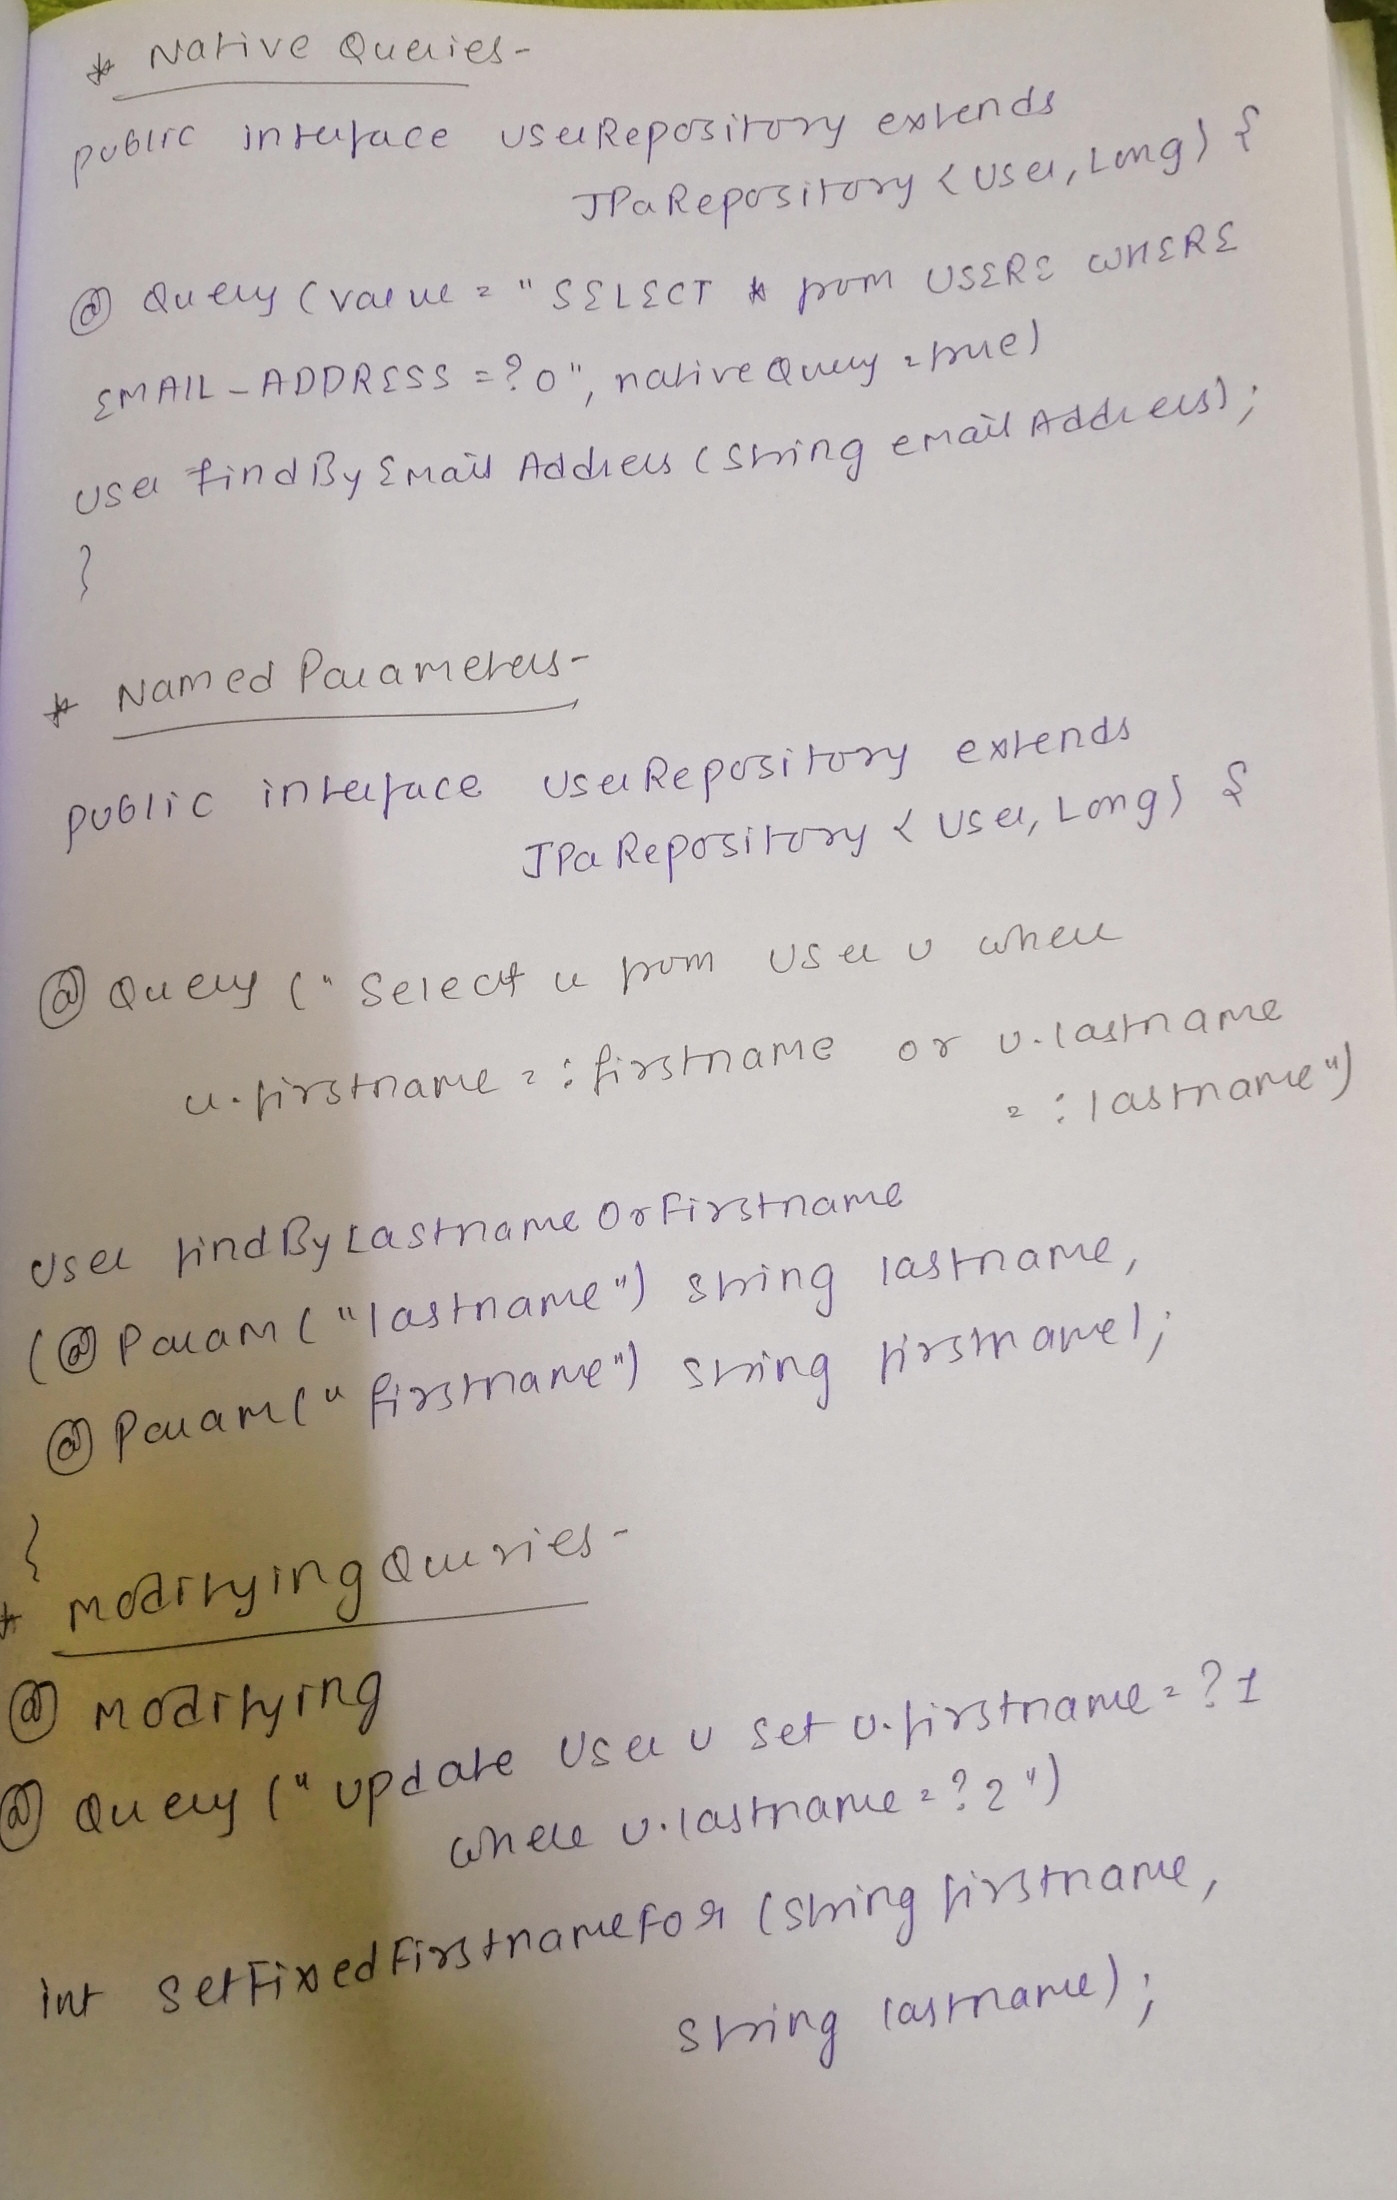 * Native Queries-
public interface UserRepository extends
JPaRepository <User, Long> {
@ Query (value = "SELECT * from USERE WHERE
EMAIL-ADDRESS = ?0", nativeQuery = true)
User findByEmail Address (String email Address);
}
* Named Parameters-
public interface UserRepository extends
JPaRepository < User, Long> {
@ Query (" Select u from User u where
u.firstname = : firstname or u.lastname
= : lastname")
User findByLastname OrFirstname
(@ Param ("lastname") String lastname,
@ Param (" firstname") String firstname);
}
* Modifying Queries-
@ Modifying
@ Query (" update User u set u.firstname = ? 1
where u.lastname = ? 2 ")
int setFixedFirstnamefor (String firstname,
String lastname);